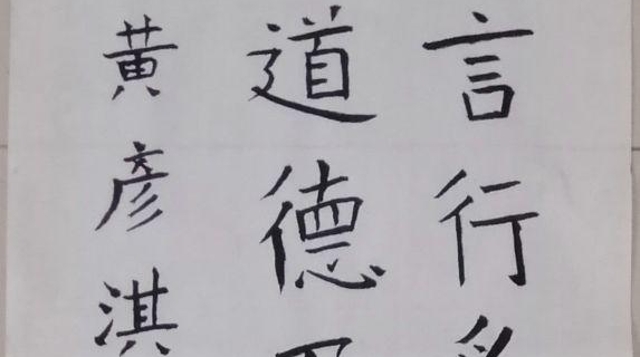 言行
道德
黄彦淇